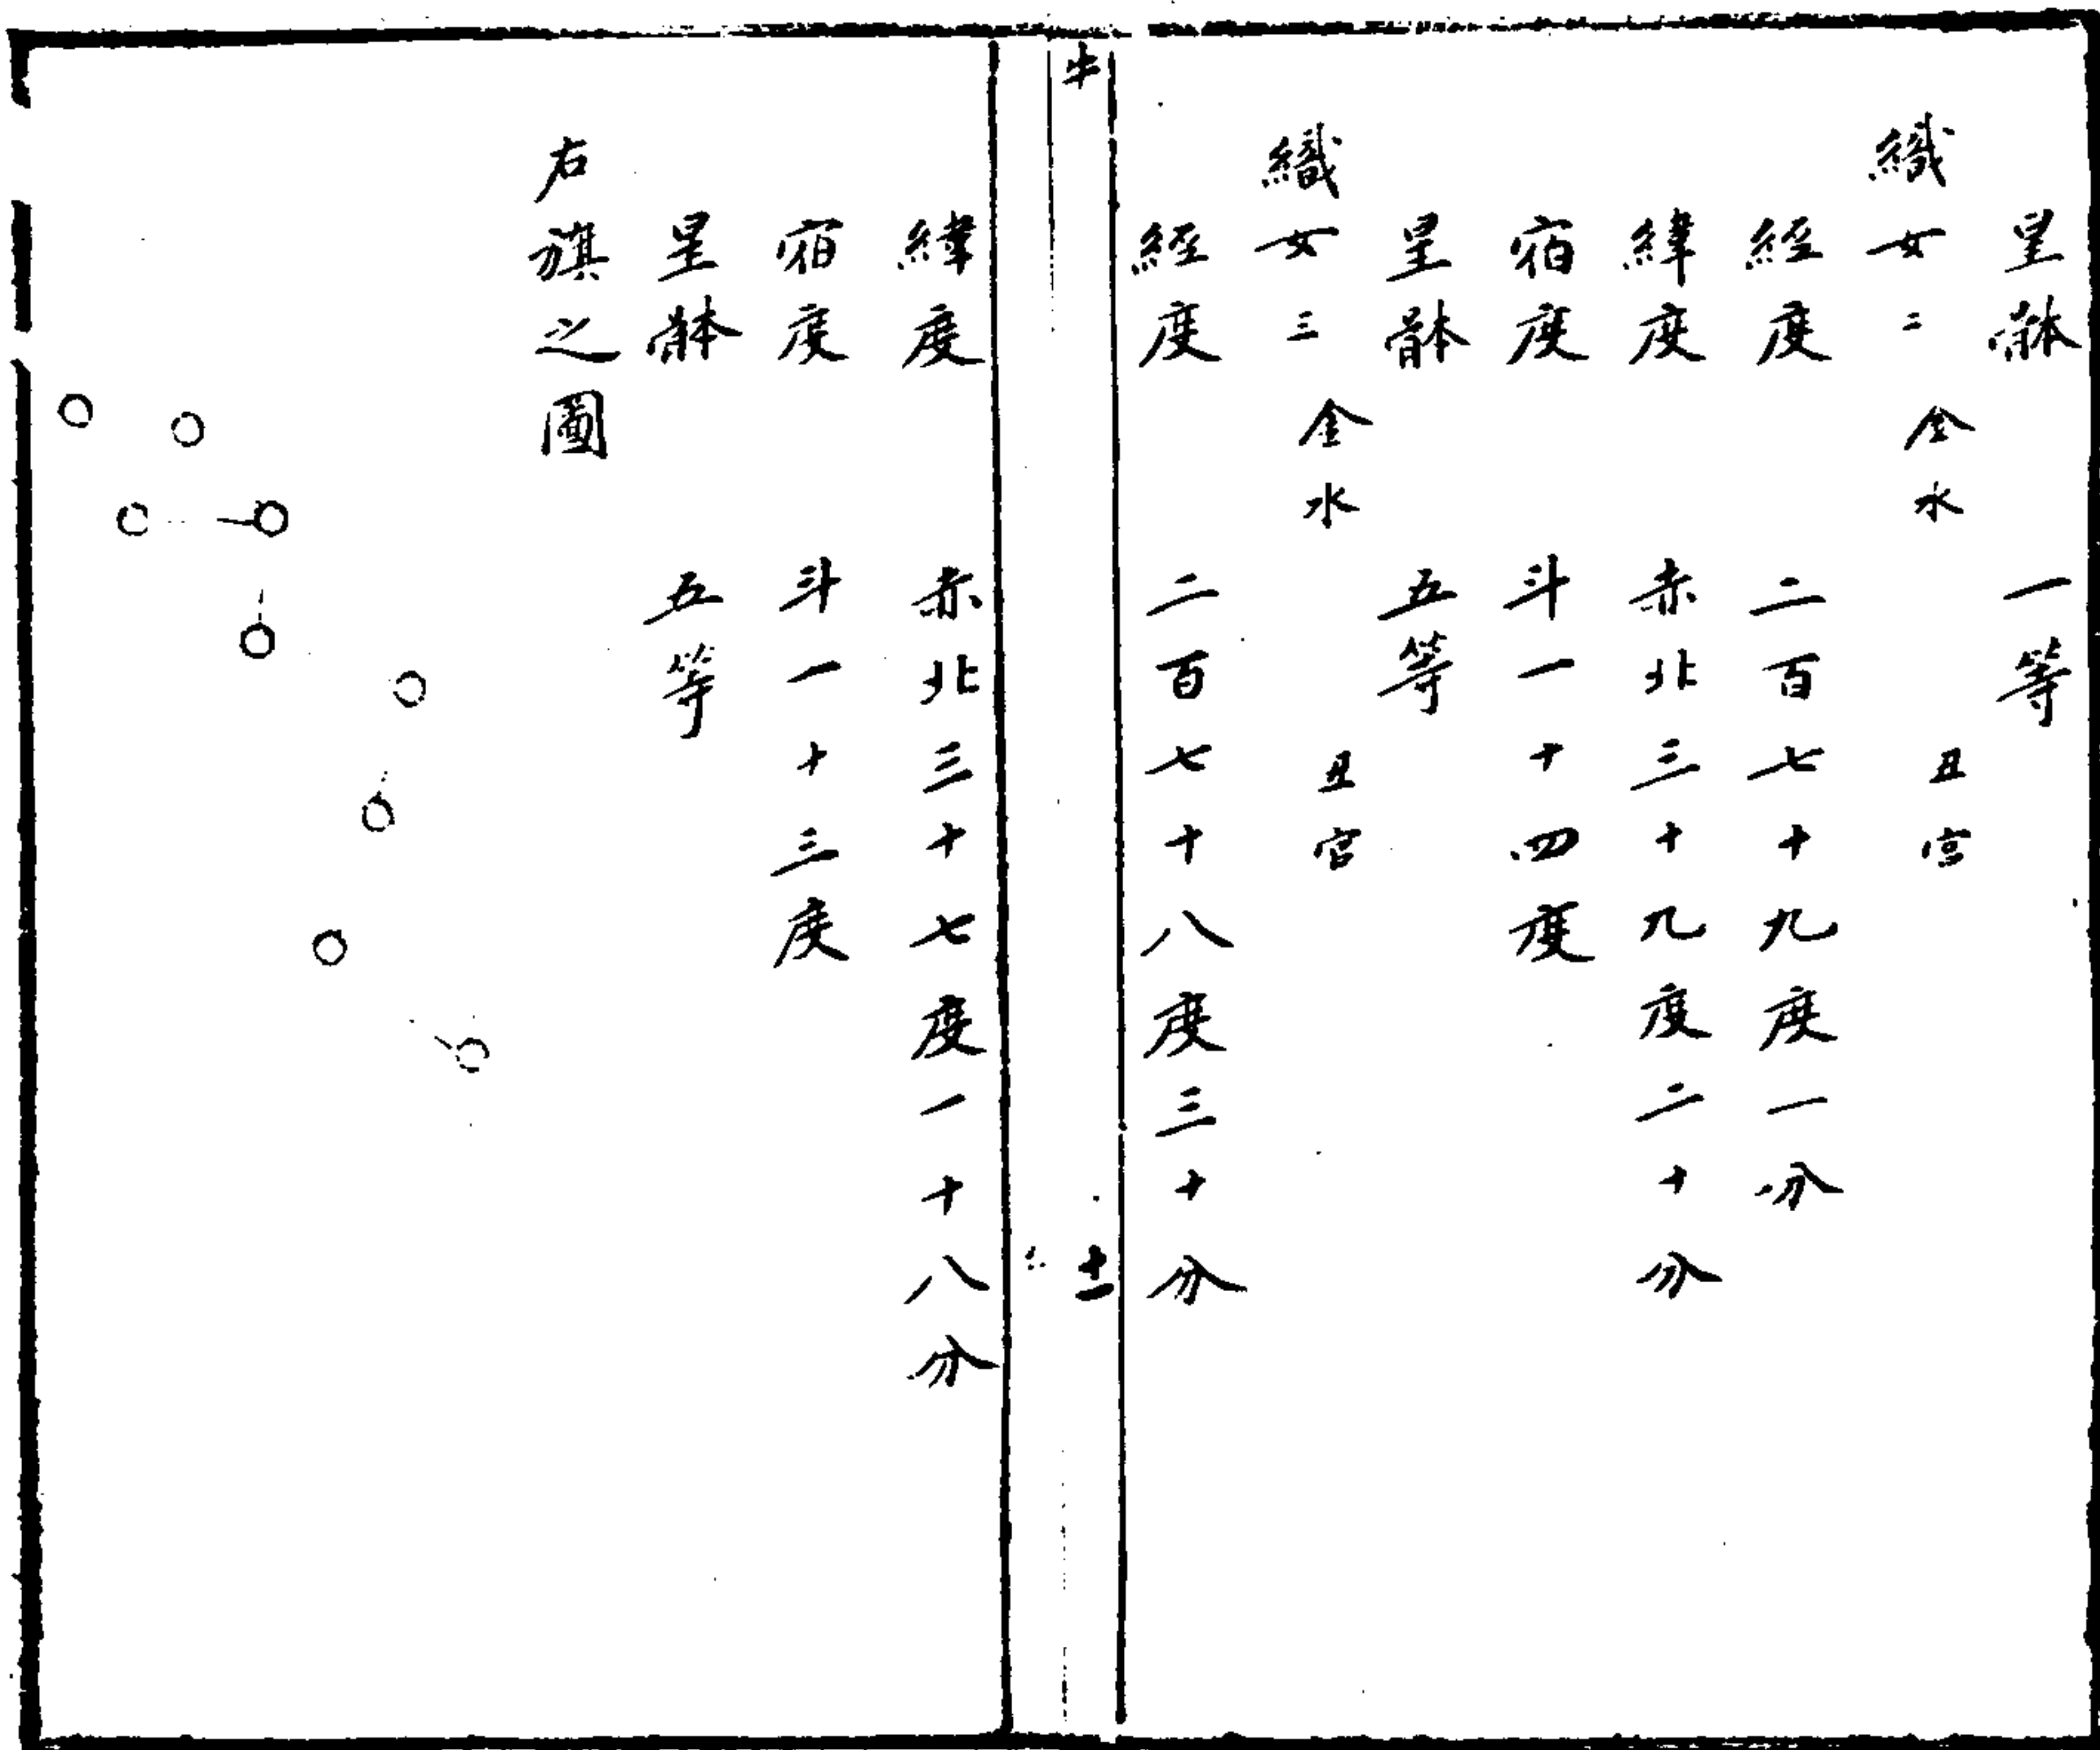 星體 一等
織女二 金水 丑宮
經度 二百七十九度一分
緯度 赤北三十九度二十分
宿度 斗一十四度
星體 五等
織女三 金水 丑宮
經度 二百七十八度三十分
牛 十二
緯度 赤北三十七度一十八分
宿度 斗一十三度
星體 五等
右旗之圖